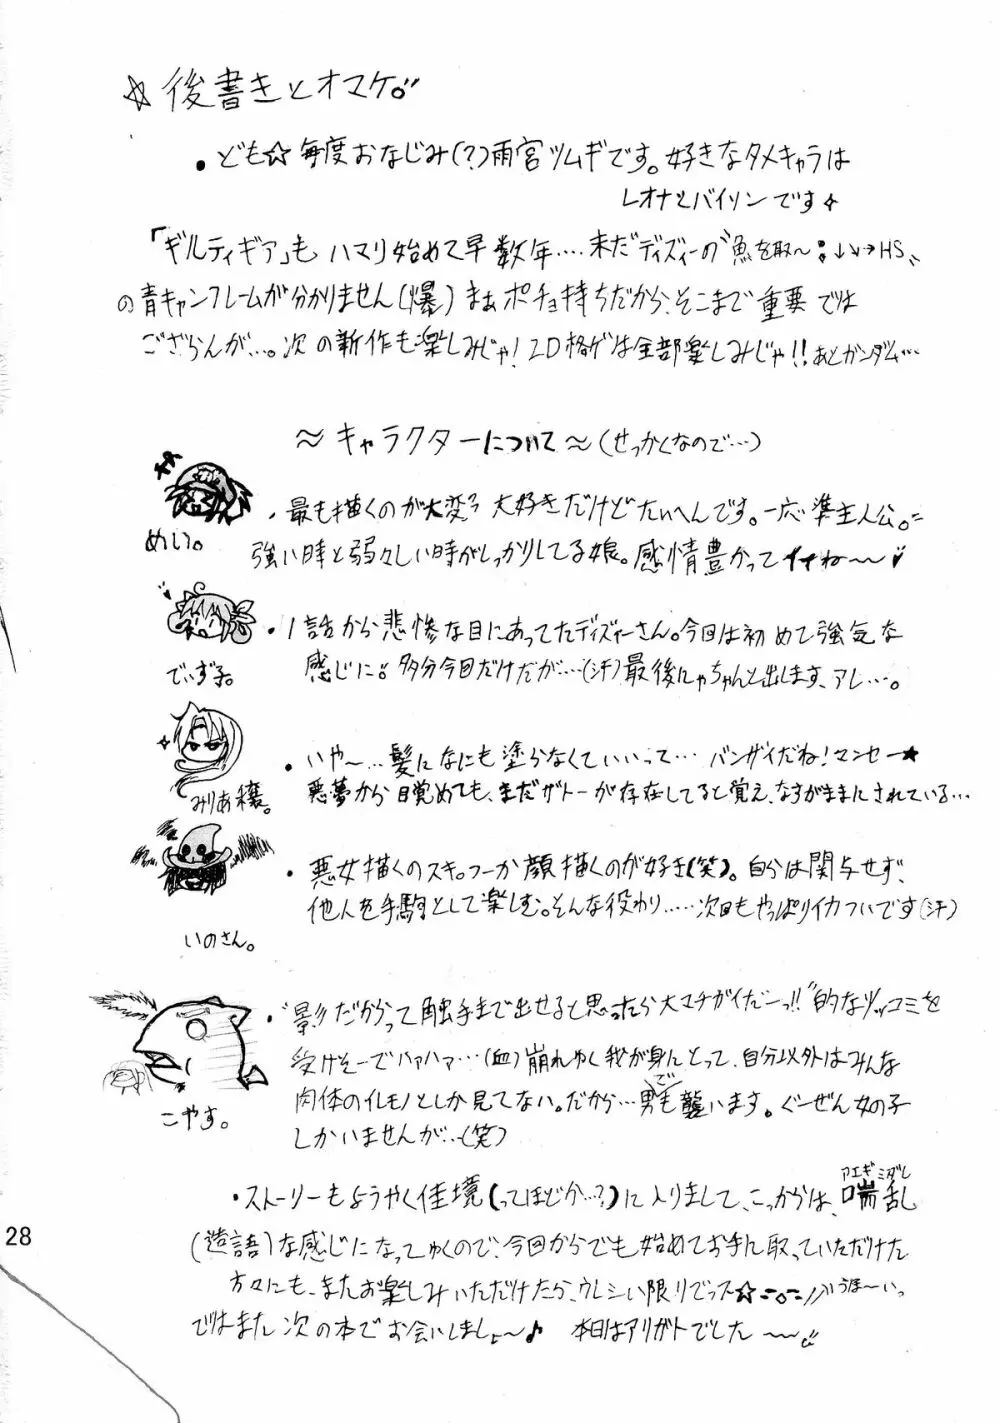 ☆後書きとオマケ。
・ども☆毎度おなじみ(?)雨宮ツムギです。好きなタメキャラは
レオナとバイソンです
「ギルティギア」もハマり始めて早数年‥‥未だディズィーの"魚を取〜:↓↘→HS"
の青キャンフレームが分かりません(爆)まぁポチョ持ちだから、そこまで重要では
ござらんが…。次の新作も楽しみじゃ!2D格ゲは全部楽しみじゃ!!あとガンダム…
〜キャラクターについて〜(せっかくなので…)
めい。
・最も描くのが大変っ大好きだけどたいへんです。一応準主人公。
強い時と弱々しい時がしっかりしてる娘。感情豊かってイイね〜
でぃず子。
・1話から悲惨な目にあってたディズィーさん。今回は初めて強気な
感じに。多分今回だけだが‥‥(汗)最後にゃちゃんと出します、アレ‥‥。
みりあ穣。
・いや〜…髪になにも塗らなくていいって… バンザイだね!マンセー★
悪夢から目覚めても、まだザトーが存在してると覚え、なすがままにされている…
いのさん。
・悪女描くのスキ。つーか顔描くのが好き(笑)。自分は関与せず、
他人を手駒として楽しむ。そんな役わり……次回もやっぱりイカツいです(汗)
こやす。
・"影だからって触手まで出せると思ったら大マチガイだーっ!!"的なツッコミを
受けそーでハァハァ…(血)崩れゆく我が身にとって、自分以外はみんな
肉体のイレモノとしか見てない。だから…男でも襲います。ぐーぜん女の子
しかいませんが‥(笑)
・ストーリーもようやく佳境(ってほどか…?)に入りまして、こっからは、喘乱
アエギミダレ
(造語)な感じになってゆくので、今回からでも始めてお手に取っていただけた
方々にも、またお楽しみいただけたら、ウレシい限りでっス☆ うほ〜いっ
ではまた次の本でお会いしましょ〜♪ 本日はアリガトでした〜
28